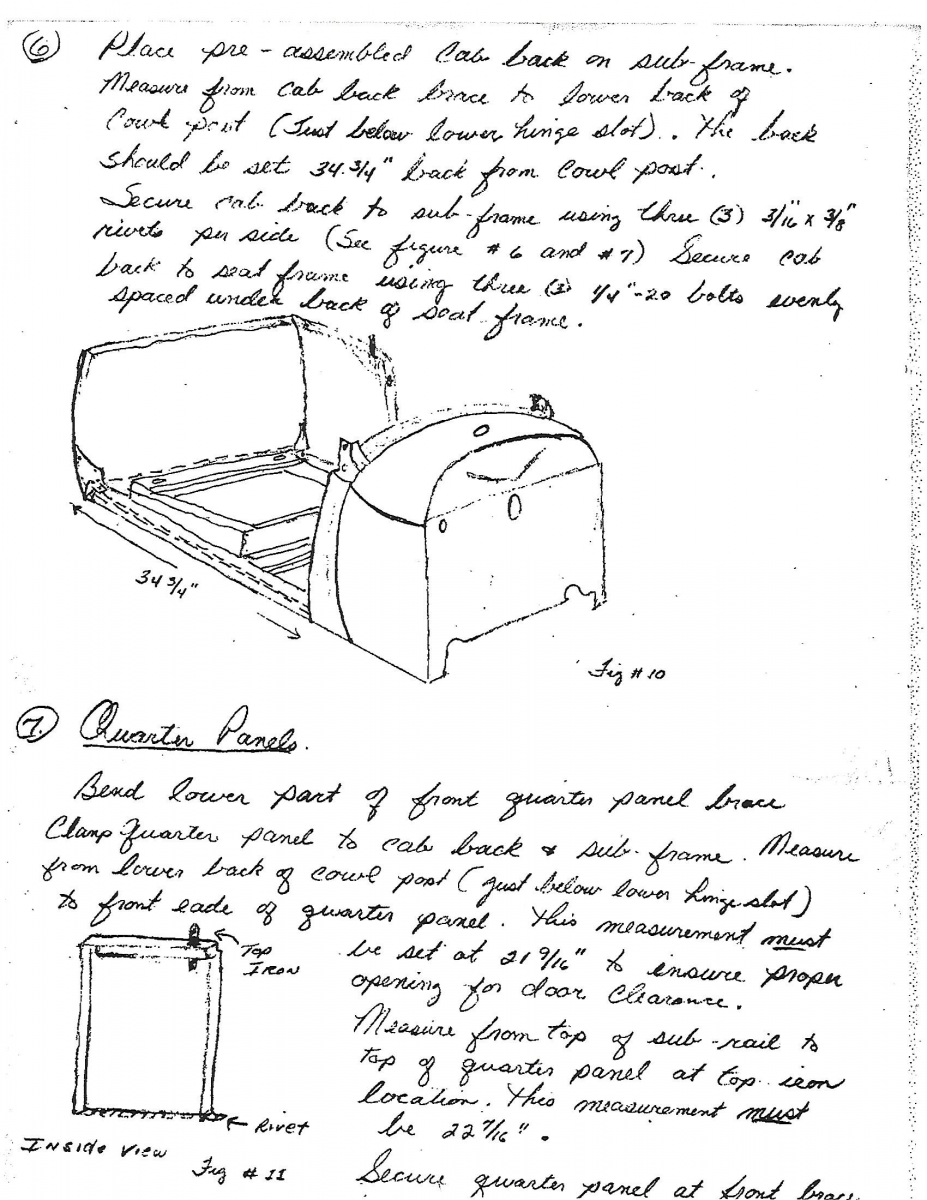 6 Place pre-assembled Cab back on sub-frame.
Measure from cab back brace to lower back of
Cowl post (Just below lower hinge slot). The back
should be set 34-3/4" back from Cowl post.
Secure cab back to sub-frame using three (3) 3/16" x 3/8"
rivets per side (See figure #6 and #7) Secure cab
back to seat frame using three (3) 1/4"-20 bolts evenly
spaced under back of seat frame.
34 3/4"
Fig #10
7. Quarter Panels.
Bend lower part of front quarter panel brace
Clamp Quarter panel to cab back & sub-frame. Measure
from lower back of cowl post (just below lower hinge slot)
to front eade of quarter panel. This measurement must
be set at 21 9/16" to ensure proper
opening for door Clearance.
Measure from top of sub-rail to
top of quarter panel at top iron
location. This measurement must
be 22 7/16".
Top
Iron
Rivet
Inside View
Fig #11
Secure quarter panel at front brace